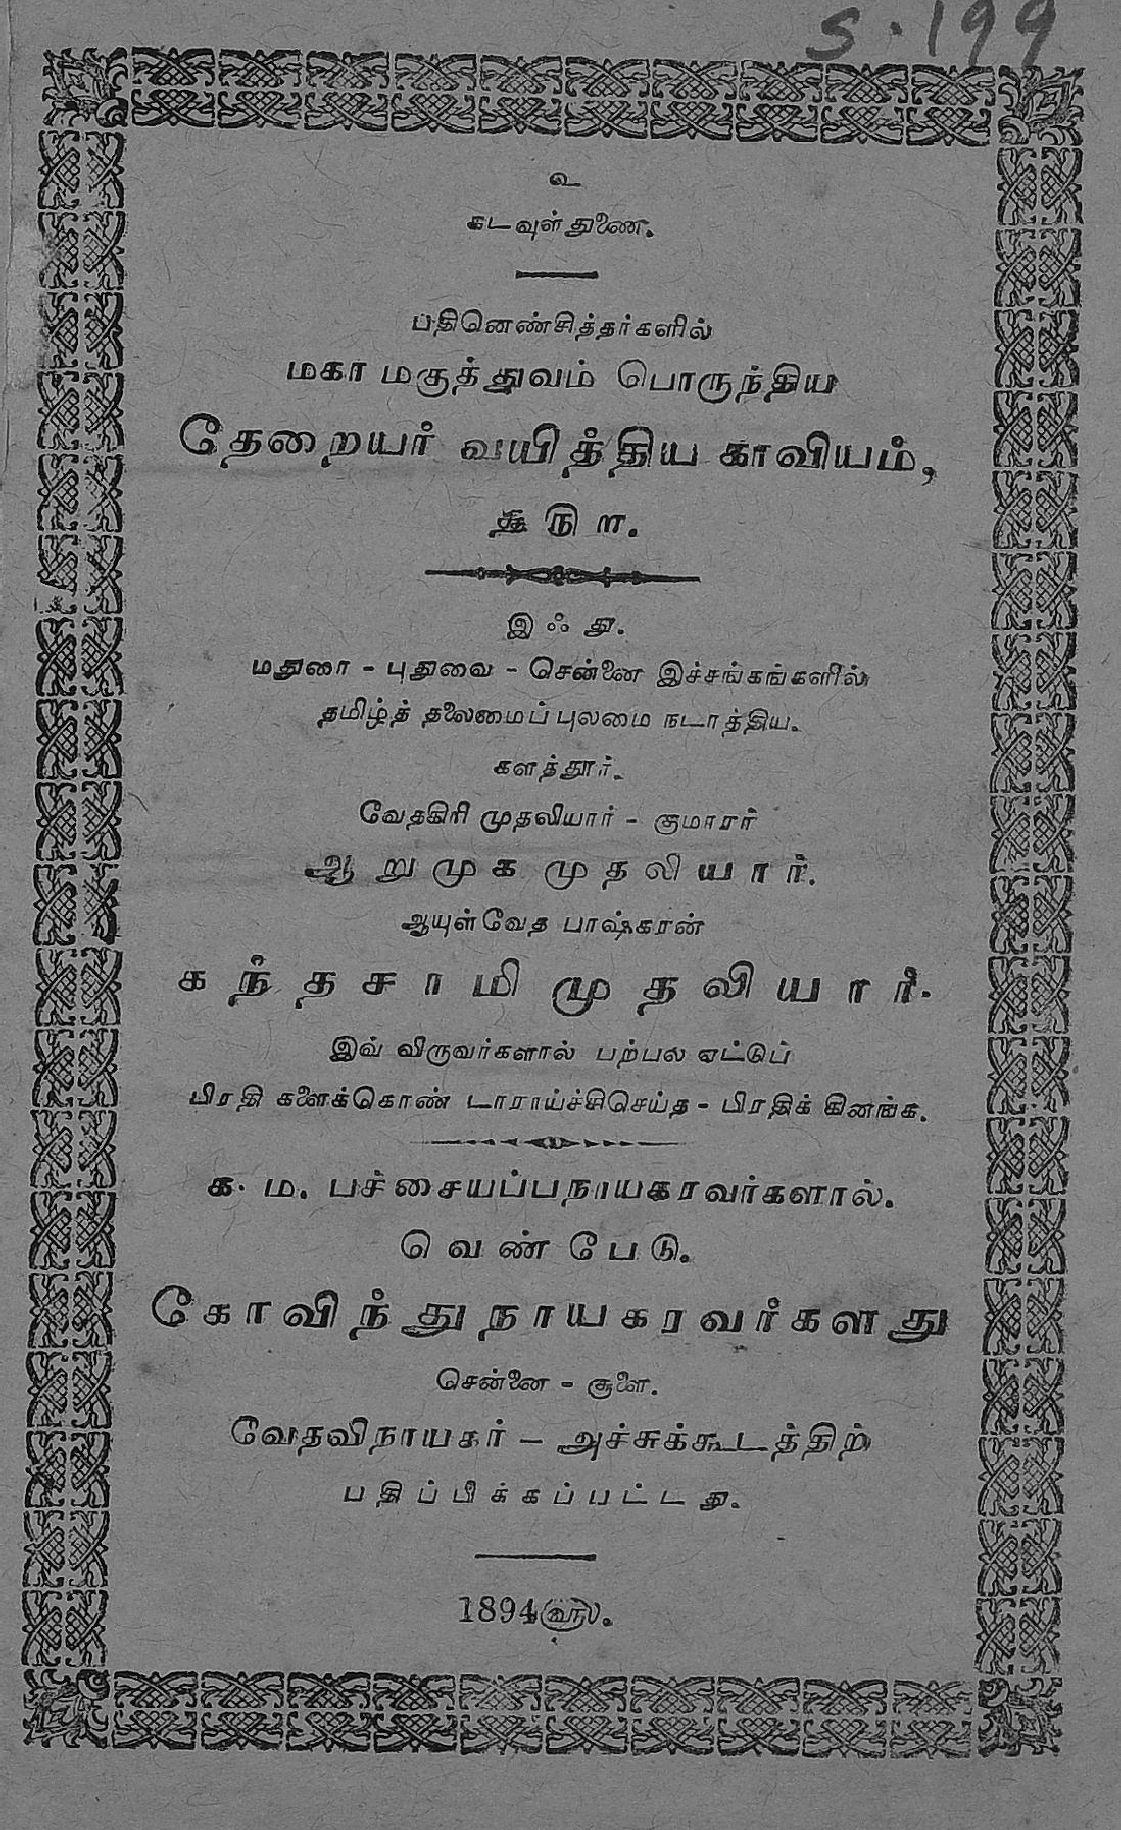 S. 199
உ
கடவுள் துணை.
பதினெண்சித்தர்களில்
மகா மகுத்துவம் பொருந்திய
தேறையர் வயித்திய காவியம்,
௲௫ ௱.
இஃது.
மதுரை - புதுவை - சென்னை இச்சங்கங்களில்
தமிழ்த் தலைமைப் புலமை நடாத்திய.
களத்தூர்.
வேதகிரி முதலியார் - குமாரர்
ஆறுமுக முதலியார்.
ஆயுள்வேத பாஷ்கரன்
கந்தசாமி முதலியார்.
இவ் விருவர்களால் பற்பல ஏட்டுப்
பிரதி களைக்கொண் டாராய்ச்சிசெய்த - பிரதிக் கிணங்க.
க. ம. பச்சையப்பநாயகரவர்களால்.
வெண்பேடு.
கோவிந்துநாயகரவர்களது
சென்னை - சூளை.
வேதவிநாயகர் - அச்சுக்கூடத்திற்
பதிப்பிக்கப்பட்டது.
1894௵.